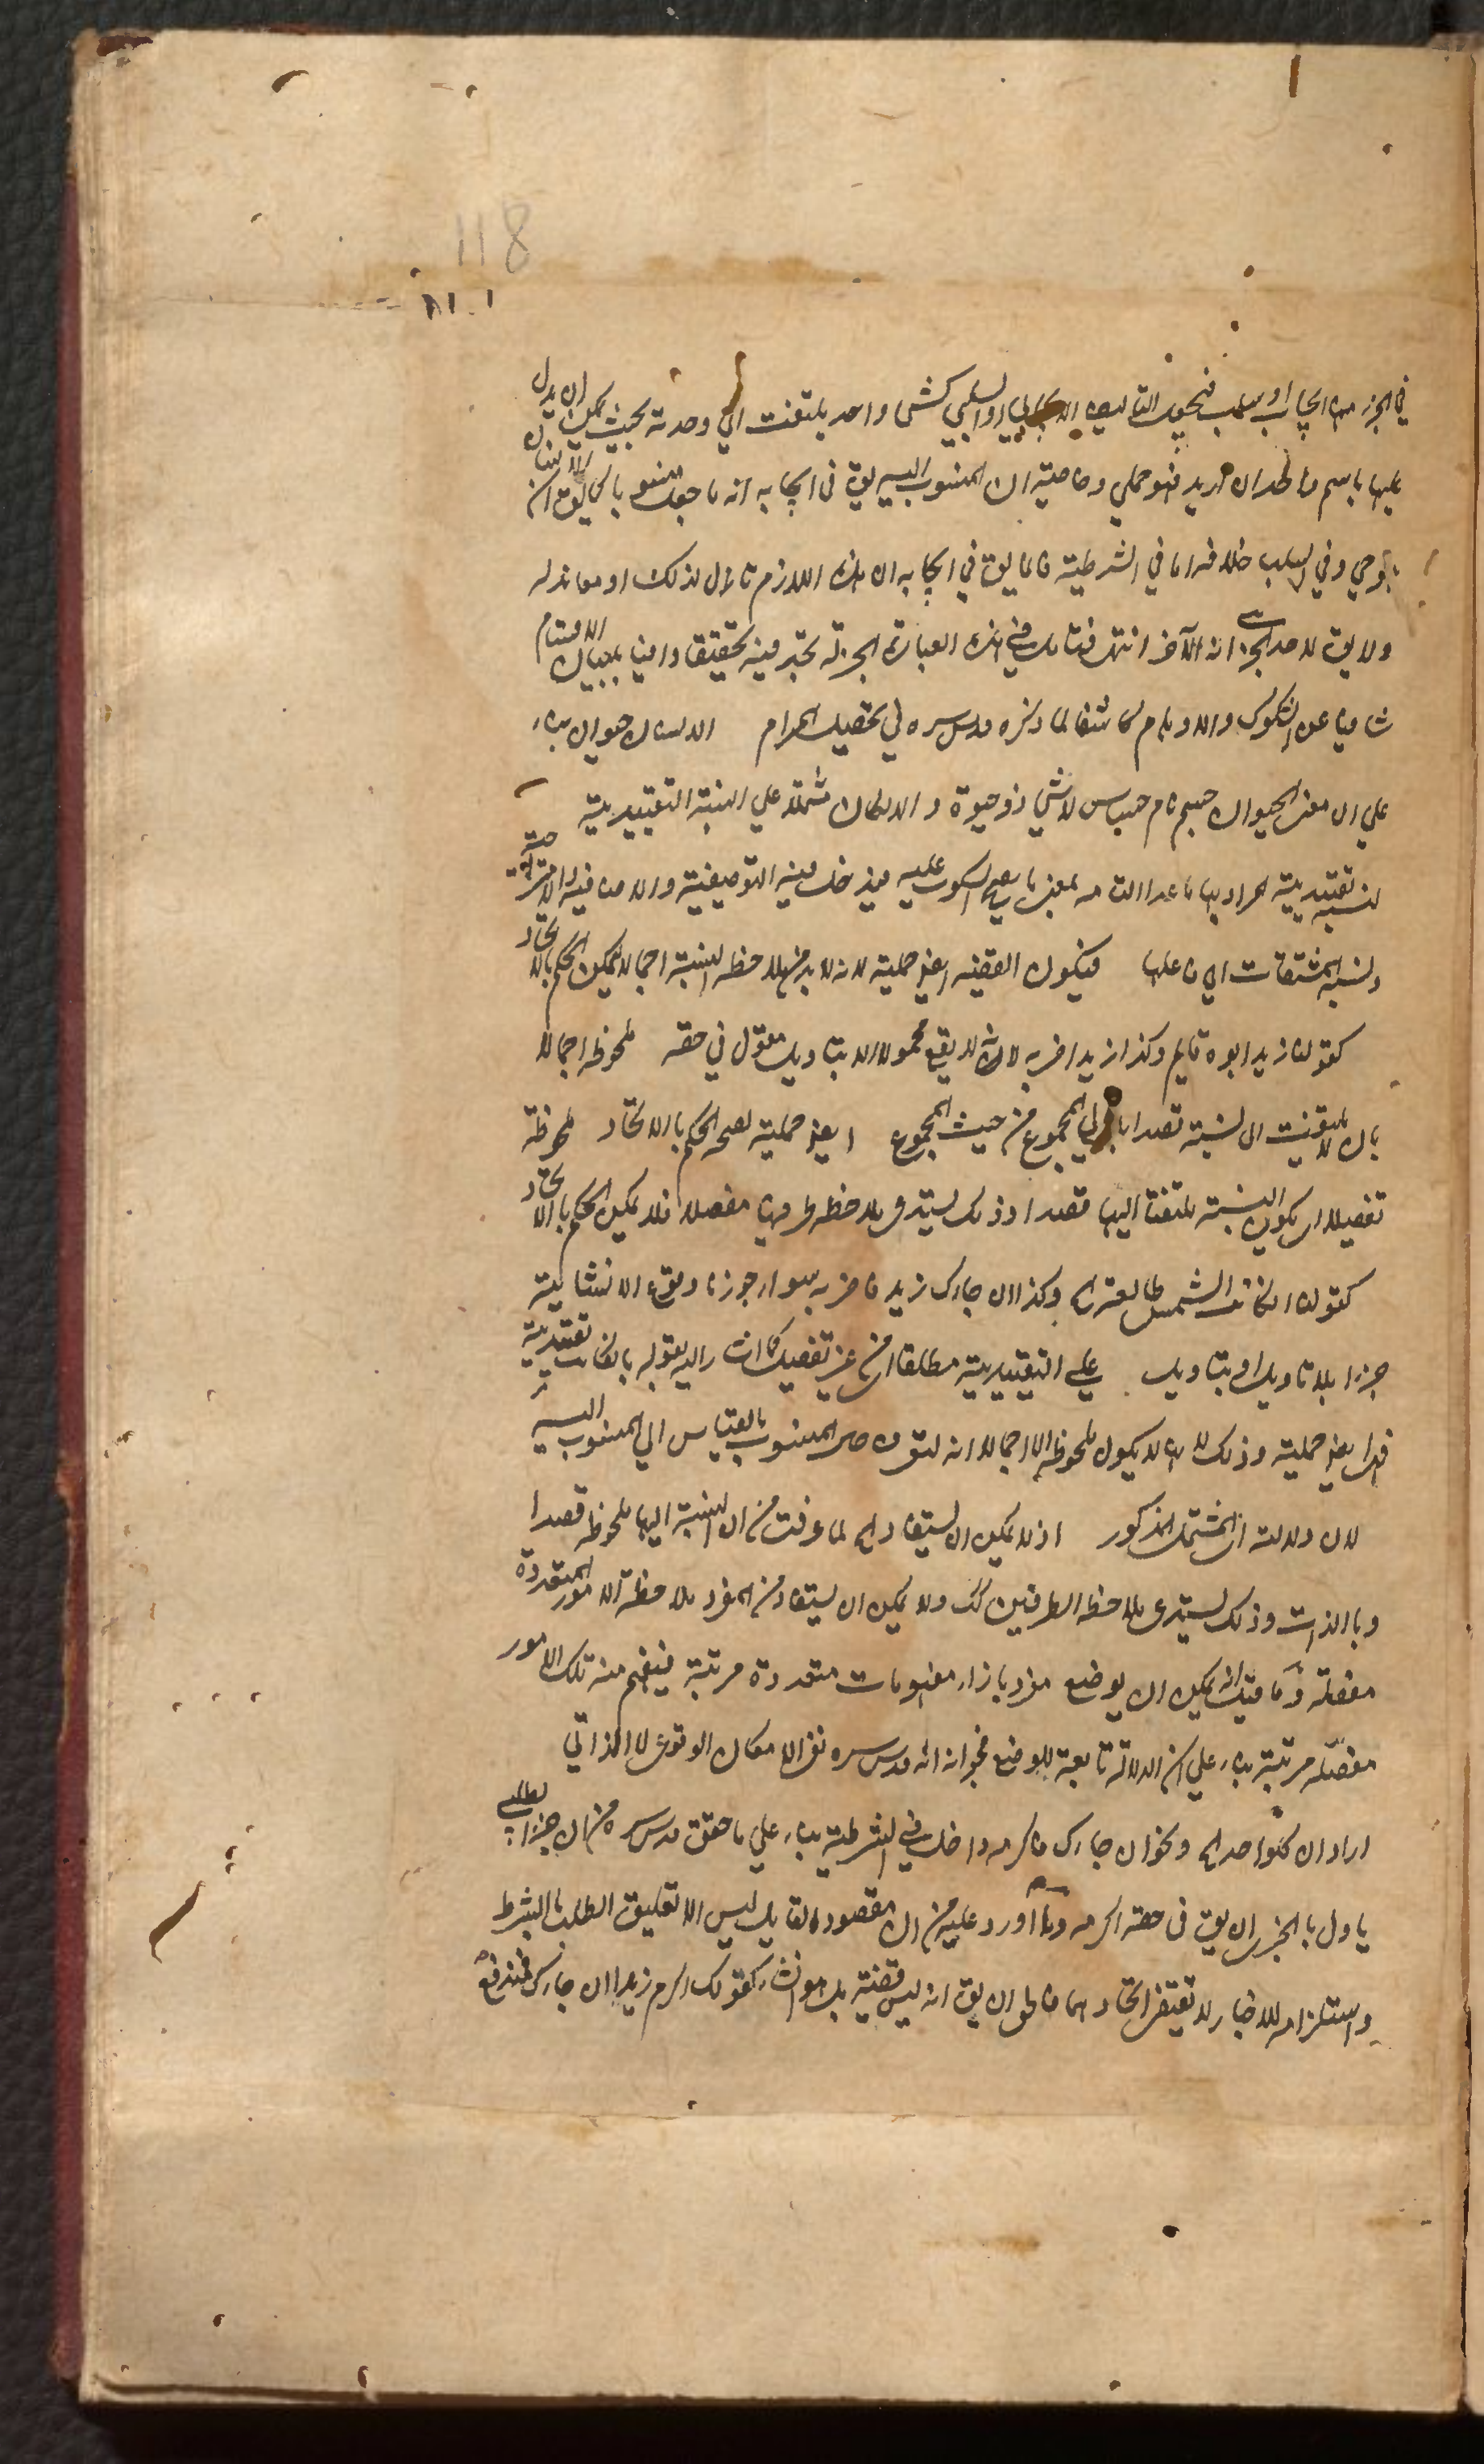 118
في الجزء منه ايجاب او سلب فيجعل التاليف الايجابي او السلبي كشئ واحد يلتفت الي وحدته بحيث يمكن ان يدل
عليها باسم فاطران اريد فهو حملي وخاصيته ان المنسوب اليه يق في ايجابه انه ما جعل منسوبا كما يق ان الانسان
وفي السلب خلافه اما في الشرطية فانما يق في ايجابه ان هذه اللازم تال لذلك او معاند له
ولا يق لاحد الجزئين انه الآخر انتهى فتامل في هذه العبارة الجزلة تجد فيه تحقيقا وافيا ببيان الاقسام
شافيا عن الشكوك والاوهام كاشفا لما ذكره قدس سره في تحصيل المرام الانسان حيوان بناء
علي ان معنى الحيوان جسم نام حساس لا شئ ذو حيوة والا لكان مشتملا علي النسبة التقييدية
لنسبة تقييدية المراد بها ما عدا التامه بمعنى ما يصح السكوت عليه فيدخل فيه التوصيفية والاضافية والامتزاجية
ونسبة المشتقات الي فاعلها فيكون القضية ايض حملية لانه لا بد من ملاحظة النسبة اجمالا ليمكن الحكم بالاتحاد
كقولنا زيد ابوه قايم وكذا زيد اضربه لان الانشاء لا يقع محمولا الا بتاويل مقول في حقه ملحوظه اجمالا
بان لا يلتفت الى النسبة قصدا بل الي المجموع من حيث المجموع ايض حملية لصحه الحكم بالاتحاد ملحوظة
تفصيلا اي يكون النسبة ملتفتا اليها قصدا وذلك يستدعي ملاحظه طرفيها مفصلا فلا يمكن الحكم بالاتحاد
كقولنا ان كانت الشمس طالعة اه وكذا ان جاءك زيد فاضربه سواء جوزنا وقوع الانشائية
جزاء بلا تاويل او بتاويل علي التقييدية مطلقا من غير تفصيل كما اشار اليه بقوله بان كانت تقييدية
فهي ايض حملية وذلك لانه لا يكون ملحوظه الا اجمالا انه لتوقف حال المنسوب بالقياس الي المنسوب اليه
لان دلالته المشتمل المذكور اذ لا يمكن ان يستفاد اه لما عرفت من ان النسبة اليها ملحوظه قصدا
وبالذات وذلك يستدعي ملاحظه الطرفين كك ولا يمكن ان يستفاد من المفرد ملاحظة الامور المتعددة
مفصلة وما قيل انه يمكن ان يوضع مفرد بازاء مفهومات متعددة مرتبة فيفهم منه تلك الامور
مفصله مرتبة بناء علي ان الدلالة تابعة للوضع فجوابه انه قدس سره نفى الامكان الوقوعي لا الذاتي
اراد ان كلواحد اه ونحو ان جاءك فاكرمه داخل في الشرطية بناء علي ما حقق قدس سره من ان الجزاء الطلبي
ياول بالخبر اي يق في حقه اكرمه وما اورد عليه من ان مقصود القايل ليس الا تعليق الطلب بالشرط
واستلزامه للاخبار لا يقتضي اتحادهما فالحق ان يق انه ليس قضية بل هو انشاء كقولك اكرم زيدا ان جاءك فمندفع